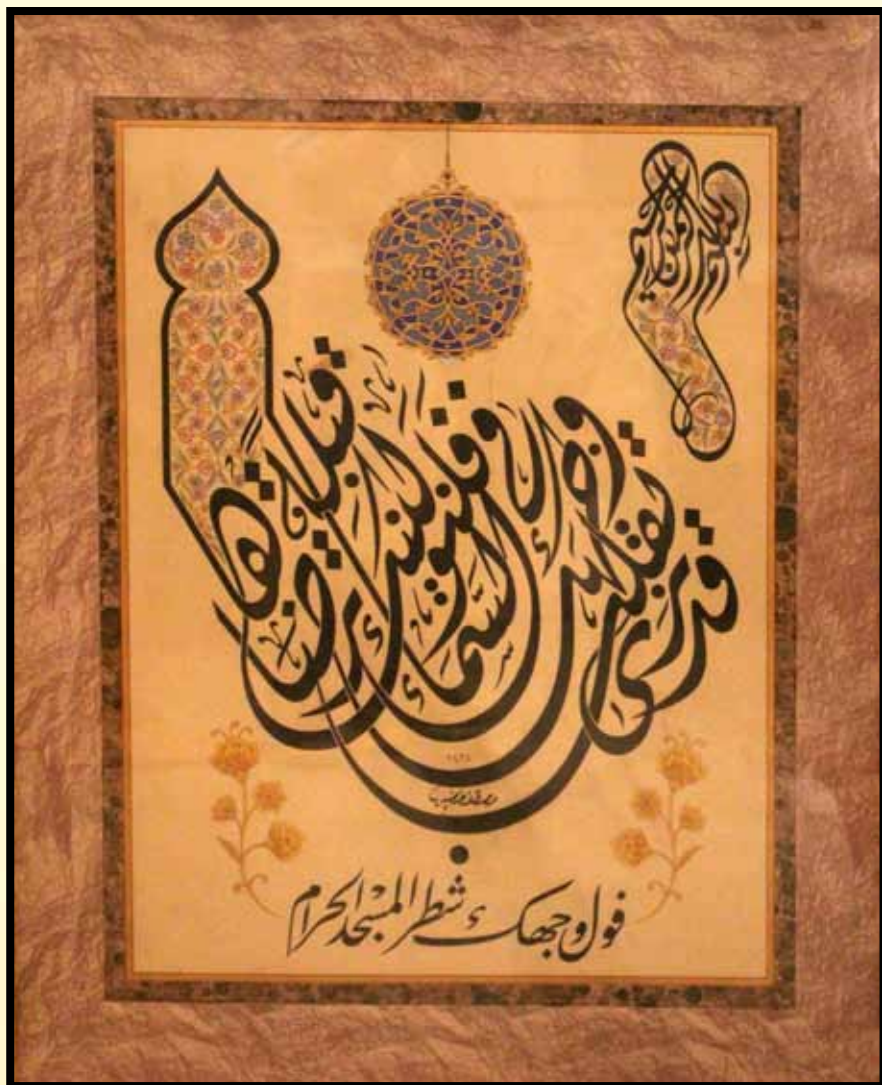 بسم الله الرحمن الرحيم
قد نرى تقلب وجهك في السماء فلنولينك قبلة ترضاها
١٤٢٤
فول وجهك شطر المسجد الحرام